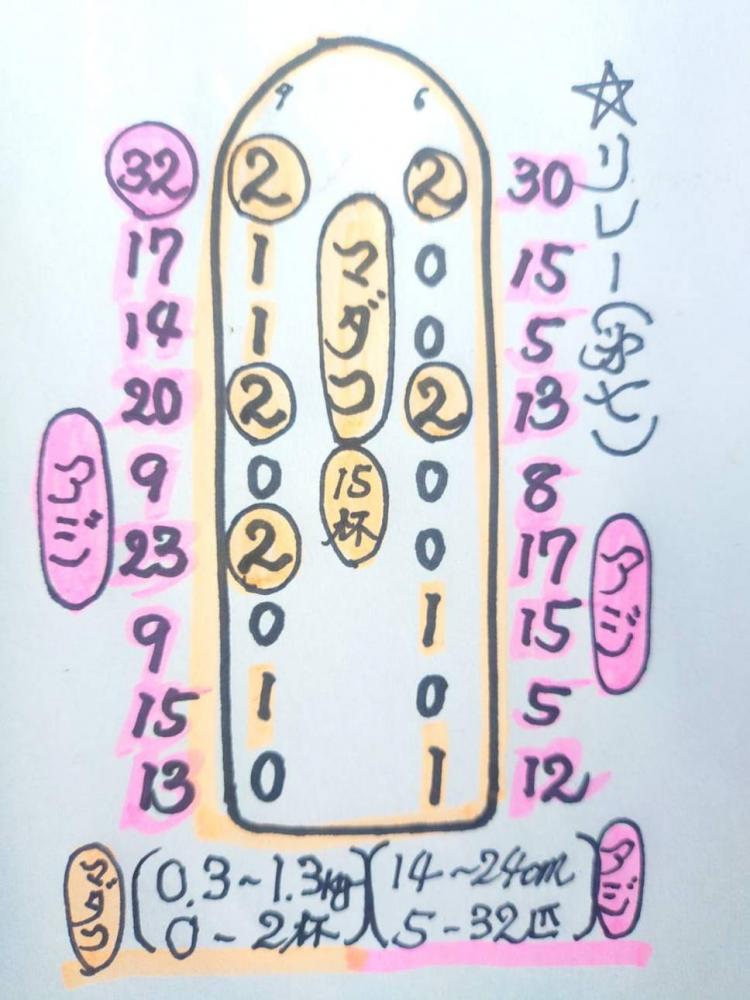 ☆リレー(弥七)
9 6
32 2 2 30
17 1 0 15
14 1 0 5
20 2 2 13
9 0 0 8
23 2 0 17
9 0 1 15
15 1 0 5
13 0 1 12
マダコ
15杯
アジ
アジ
マダコ (0.3~1.3kg)(14~24cm) アジ
0-2杯 5-32匹